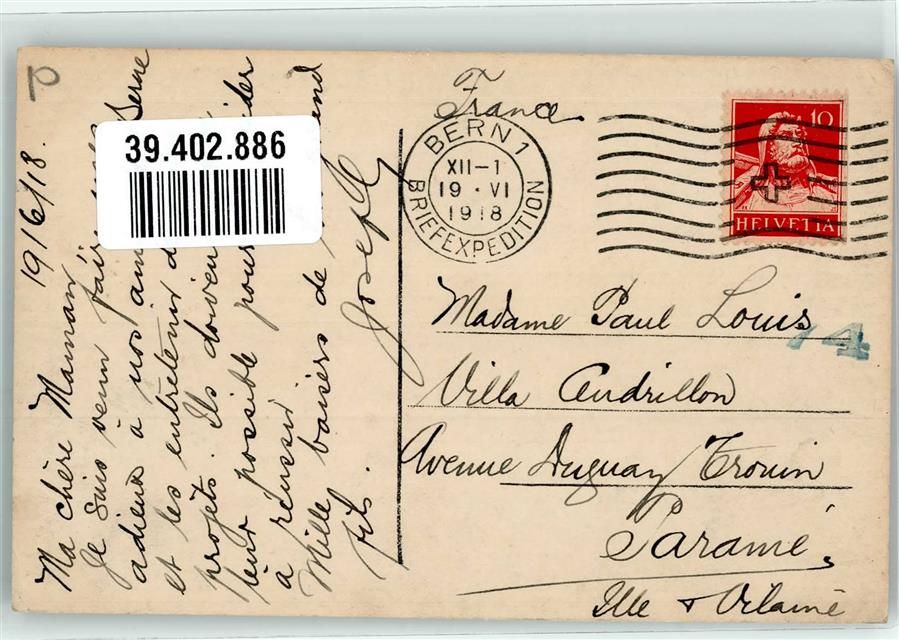 39.402.886
19/6/18.
Ma chère Maman,
Je suis venu faire Berne
adieux à nos am
et les entretenir d
projets. Ils doivent ider
leur possible pous
à réussir.
Mille baisers de and
fils. Joseph
France
BERN 1
XII-1
19 · VI
1918
BRIEFEXPEDITION
10
HELVETIA
Madame Paul Louis
14
Villa Andrillon
Avenue Duguay Trouin
Paramé.
Ille & Vilaine